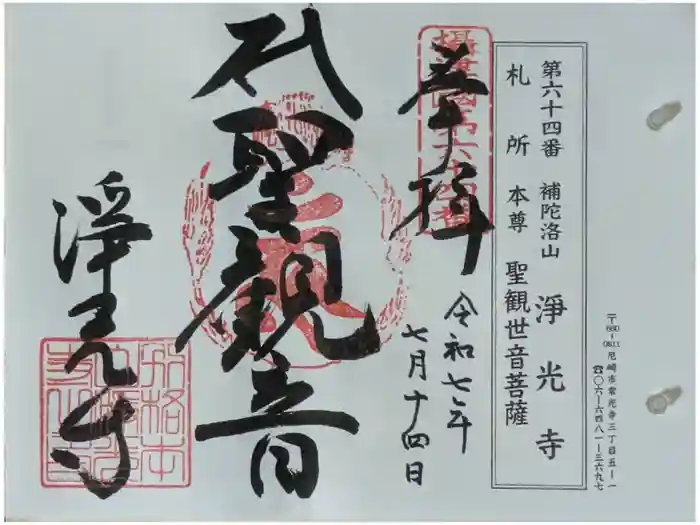 〒660-0811 尼崎市常光寺三丁目五ー一
☎〇六ー六四八一ー三六九七
第六十四番 補陀洛山 淨光寺
札所本尊 聖観世音菩薩
奉拝
令和七年
七月十四日
聖観音
淨光寺